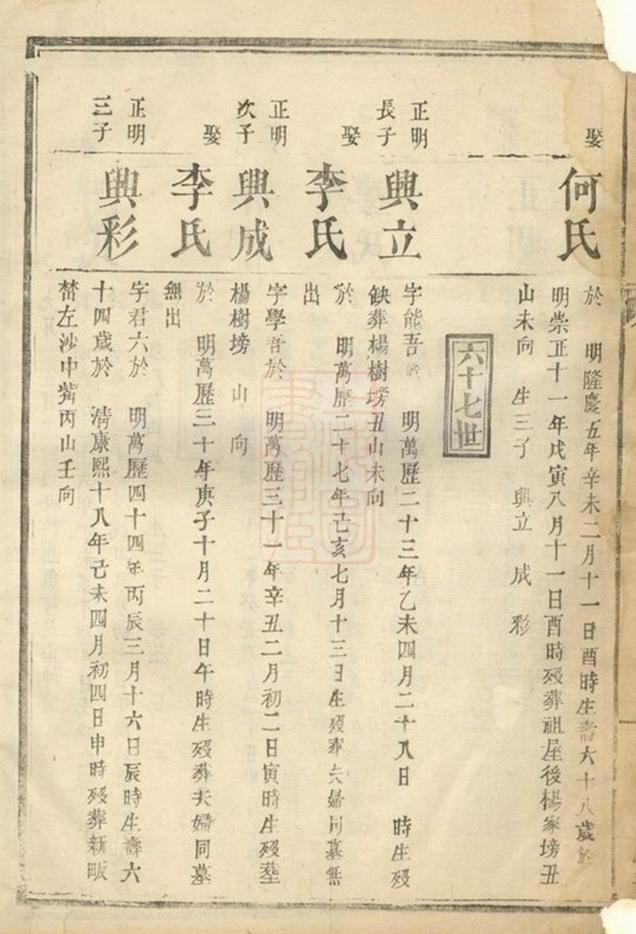 娶
何氏
於 明隆慶五年辛未二月十一日酉時生壽六十八歲於
明崇正十一年戊寅八月十一日酉時歿葬祖屋後楊家塝丑
山未向 生三子 興立 成 彩
六十七世
正明
長子
興立
字能吾於 明萬歷二十三年乙未四月二十八日 時生歿
缺葬楊樹塝丑山未向
娶
李氏
於 明萬歷二十七年己亥七月十三日生歿葬夫婦同墓無
出
正明
次子
興成
字學吾於 明萬歷三十一年辛丑二月初二日寅時生歿塟
楊樹塝 山 向
娶
李氏
於 明萬歷三十年庚子十月二十日午時生歿葬夫婦同墓
無出
正明
三子
興彩
字君六於 明萬歷四十四年丙辰三月十六日辰時生壽六
十四歲於 清康熙十八年己未四月初四日申時歿葬新畈
左沙中嘴丙山壬向